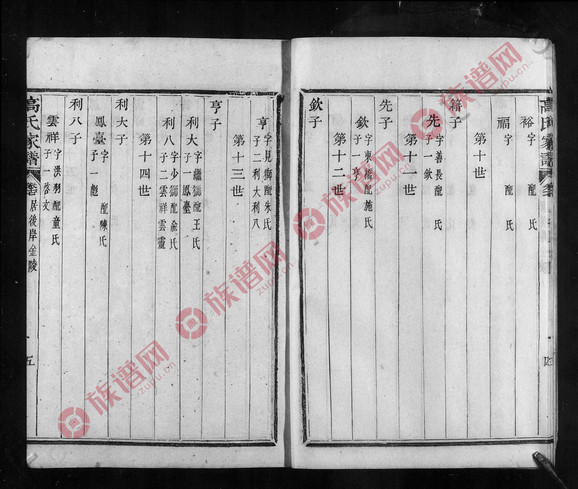 裕 字 配 氏
福 字 配 氏
第十世
籍子
先 字善長配 氏
子一欽
第十一世
先子
欽 字東橋配施氏
子一亨
第十二世
欽子
亨 字見衡配朱氏
子二利大利八
第十三世
亨子
利大 字繼 配王氏
子一鳳臺
利八 字少 配俞氏
子二雲祥雲靈
第十四世
利大子
鳳臺 字 配陳氏
子一 
利八子
雲祥 字 配童氏
子一 文
萬氏家譜
居後岸金陵
五
族谱网
zupu.cn
族谱网
zupu.cn
族谱网
zupu.cn
族谱网
zupu.cn